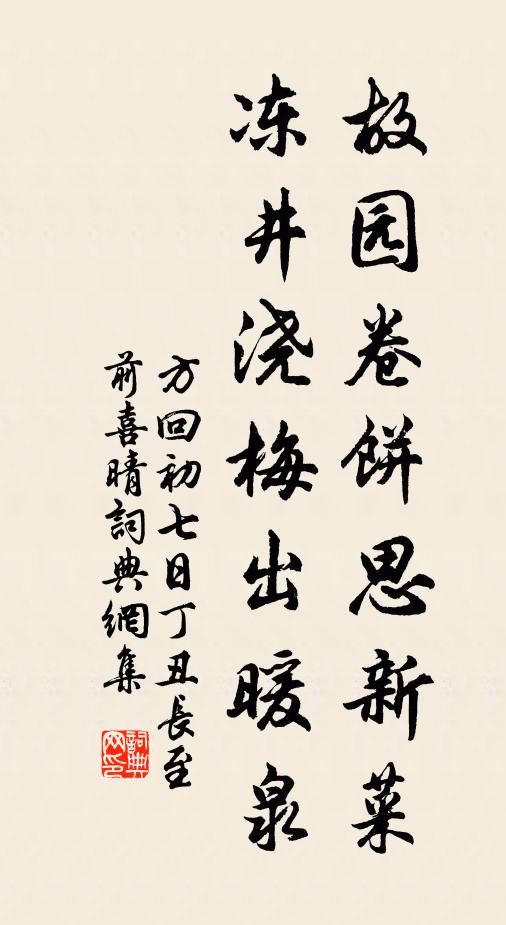 故园卷餅思新菜
冻井浇梅出暖泉
方回初七日丁丑長至
前喜晴詞典網集
詞典
网印